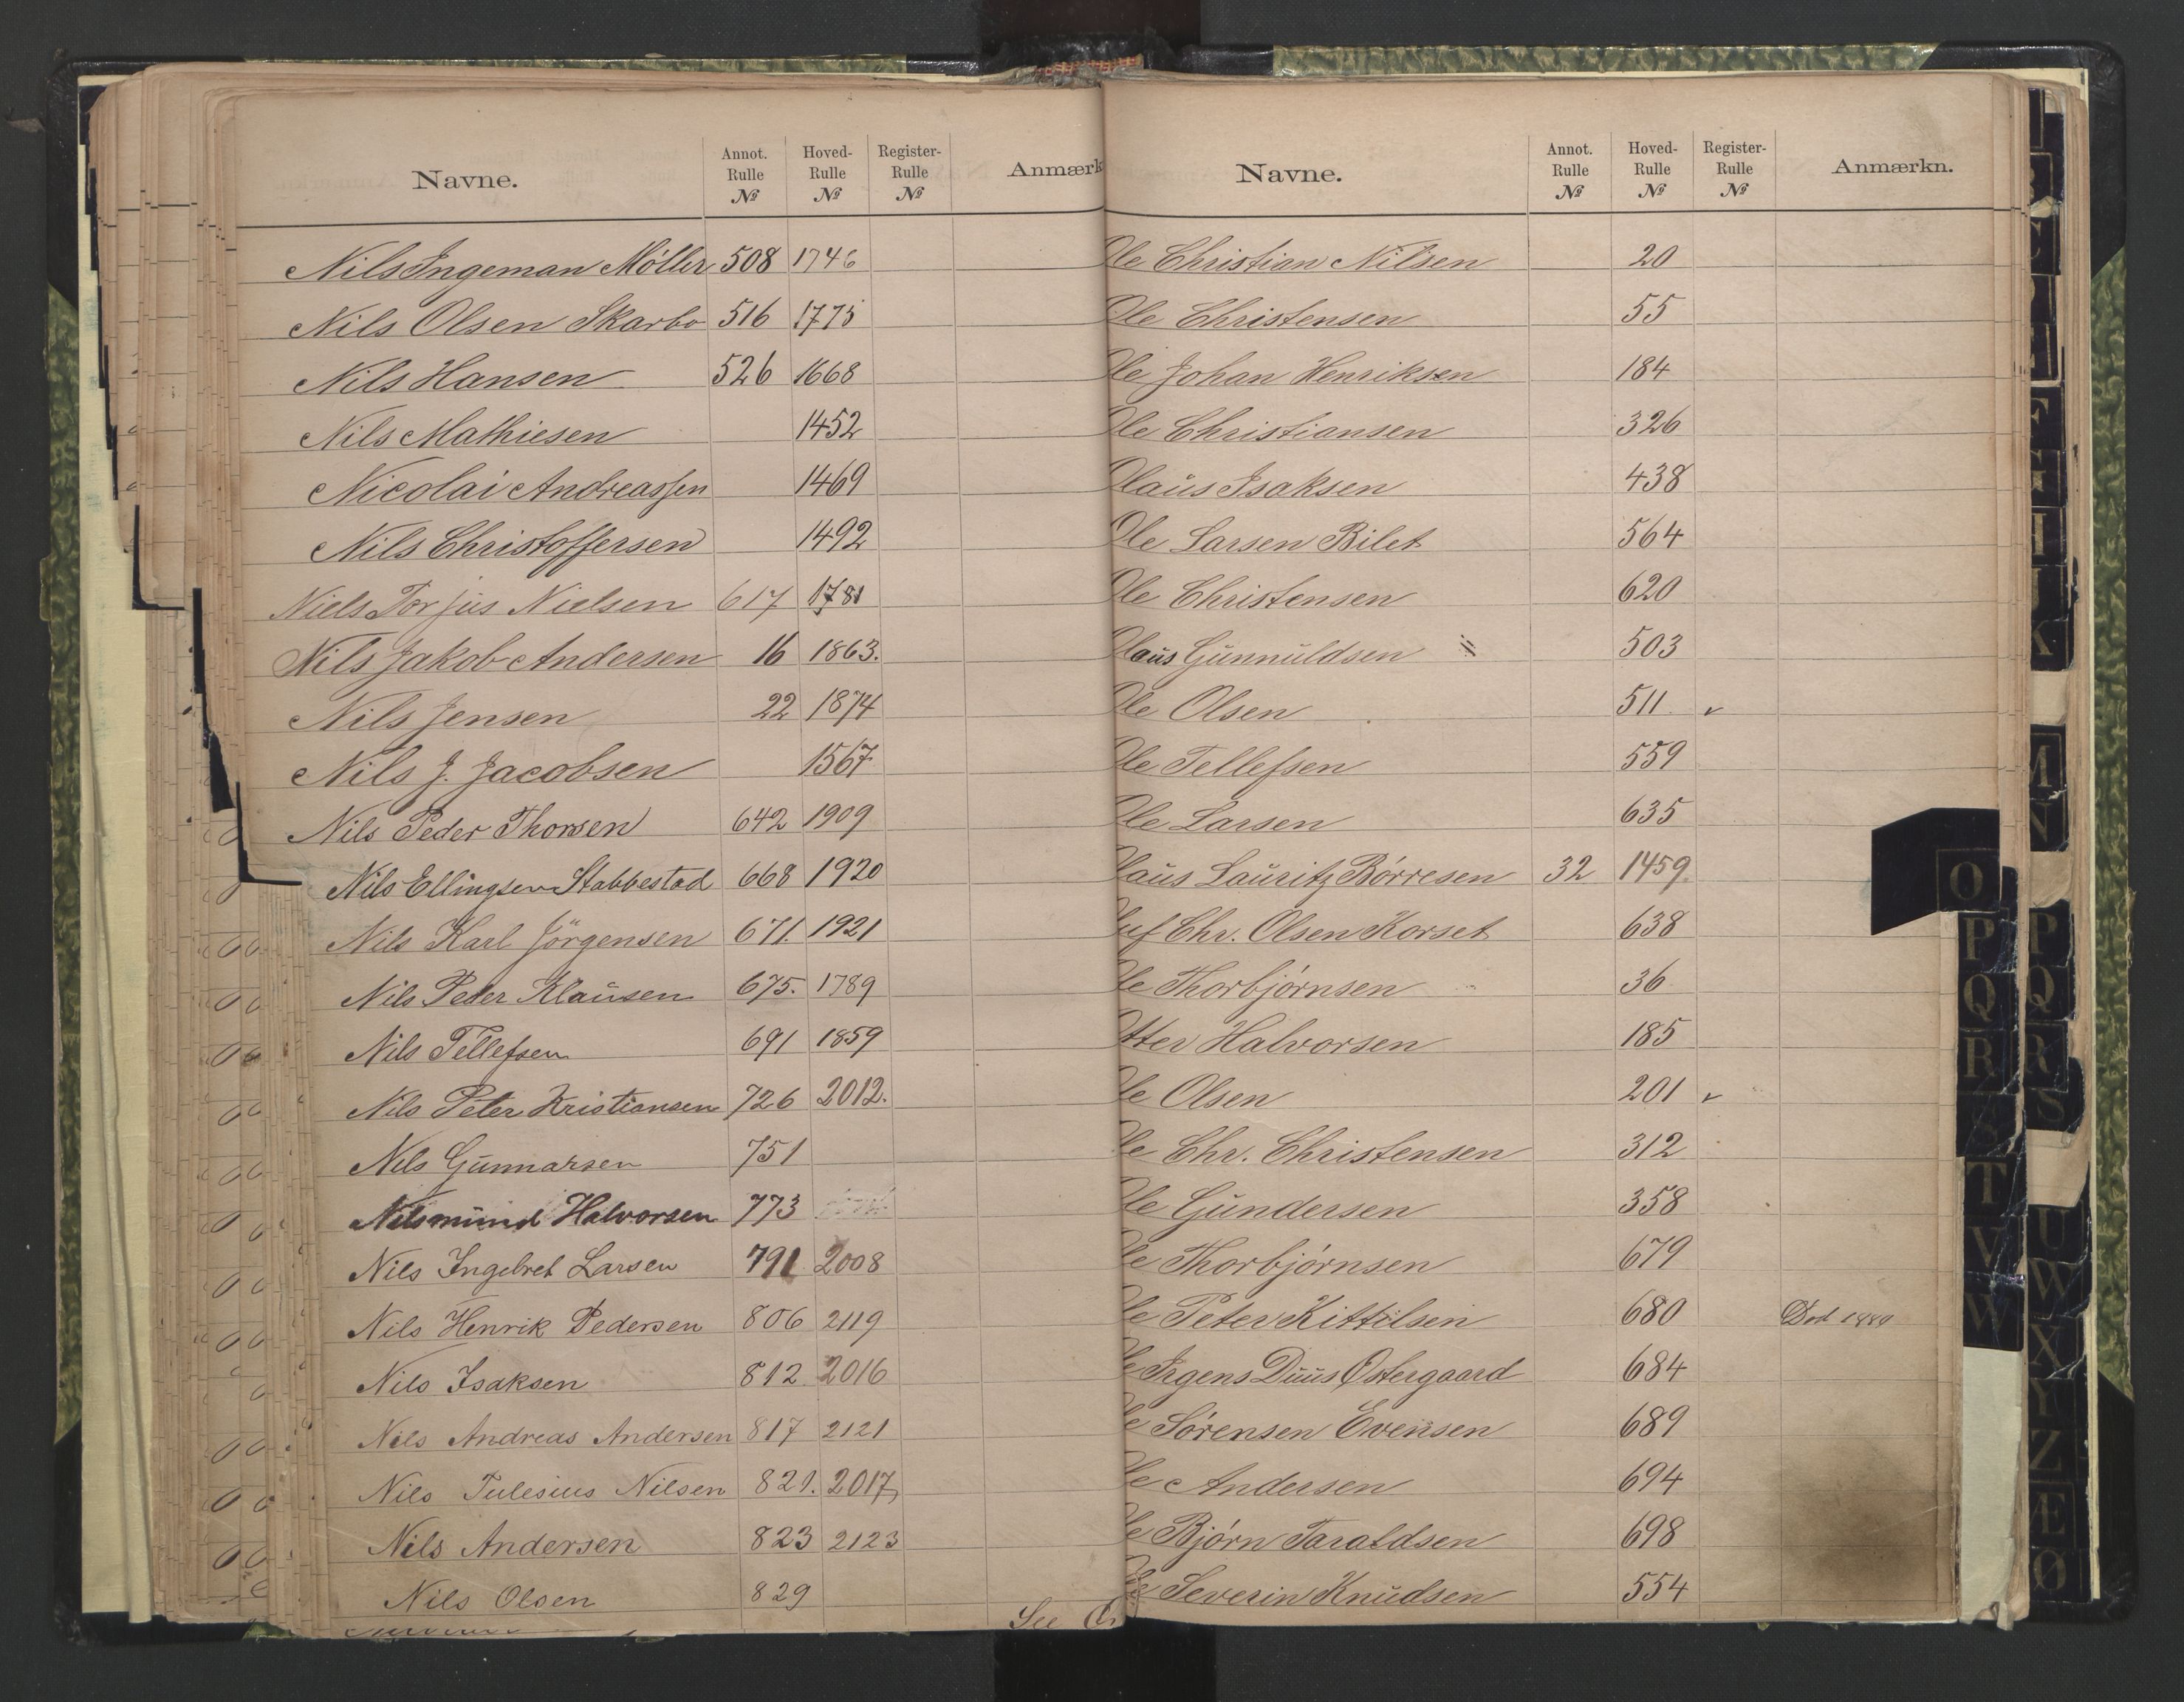 Navne. Annot. Rulle № Hoved-Rulle № Register-Rulle № Anmærk
Nils Ingeman Möller 508 1746
Nils Olsen Skarbo 516 1775
Nils Hansen 526 1668
Nils Mathiesen 1452
Nicolai Andreassen 1469
Nils Christoffersen 1492
Niels Torjus Nielsen 617 1781
Nils Jakob Andersen 16 1863.
Nils Jensen 22 1874
Nils J. Jacobsen 1567
Nils Peder Thorsen 642 1909
Nils Ellingsen Stabbestad 668 1920
Nils Karl Jörgensen 671. 1921
Nils Peder Klausen 675. 1789
Nils Tellefsen 691 1859
Nils Peter Kristiansen 726 2012.
Nils Gunnarsen 751
Nilsmund Halvorsen 773
Nils Ingebret Larsen 791 2008
Nils Henrik Pedersen 806 2119
Nils Isaksen 812 2016
Nils Andreas Andersen 817 2121
Nils Julesius Nilsen 821. 2017
Nils Andersen 823 2123
Nils Olsen 829
See
Navne. Annot. Rulle № Hoved-Rulle № Register-Rulle № Anmærkn.
Ole Christian Nilsen 20
Ole Christensen 55
Ole Johan Henriksen 184
Ole Christiansen 326
Olaus Isaksen 438
Ole Larsen Bilet 564
Ole Christensen 620
Olaus Gunnuldsen 503
Ole Olsen 511 v
Ole Tellefsen 559
Ole Larsen 635
Olaus Lauritz Börresen 32 1459.
Oluf Chr. Olsen Korset 638
Ole Thorbjörnsen 36
Otter Halvorsen 185
Ole Olsen 201 v
Ole Chr. Christensen 312
Ole Gundersen 358
Ole Thorbjörnsen 679
Ole Peter Kittilsen 680 Död 1889
Ole Irgens Duus Østergaard 684
Ole Sörensen Evensen 689
Ole Andersen 694
Ole Björn Taraldsen 698
Ole Severin Knudsen 554
O
P
Q
R
S
T
V
W
P
Q
R
S
U
W
X
Y
Z
Æ
Ø